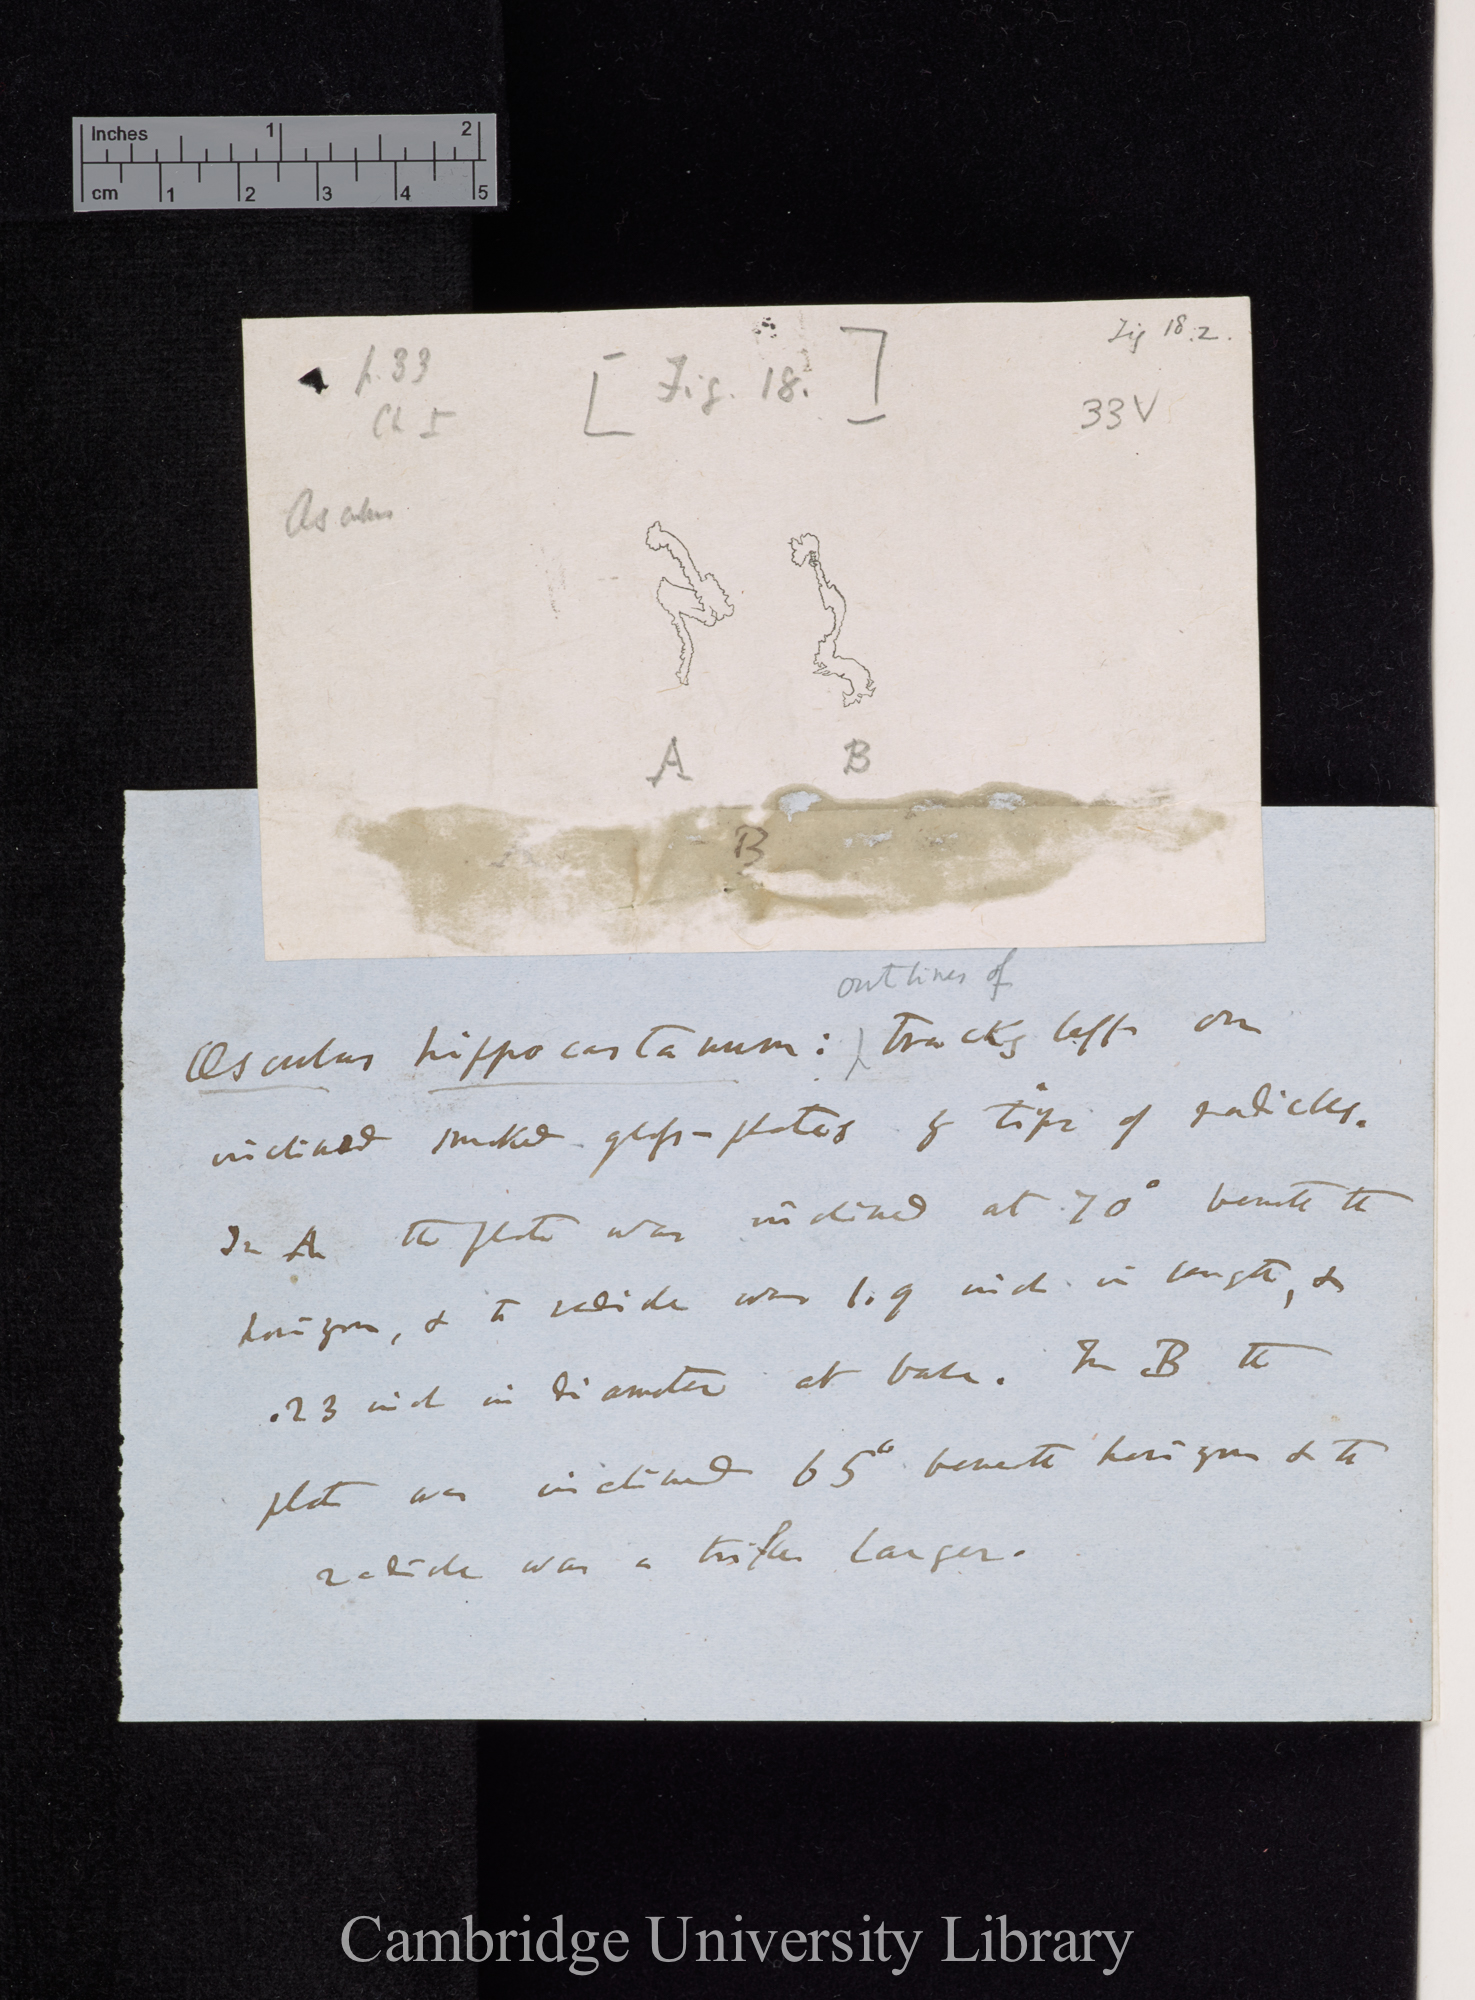 Inches 1 2
cm 1 2 3 4 5
Fig 18.2.
p. 33
[Fig. 18.]
Ch I
33V
Æsculus
A B
B
outlines of
Æsculus hippocastanum: tracks left on
inclined smoked glass-plates by tips of radicles.
In A the plate was inclined at 70° beneath the
horizon, & the radicle was 1.9 inch in length, &
.23 inch in diameter at base. In B the
plate was inclined 65° beneath horizon & the
radicle was a trifle larger.
Cambridge University Library